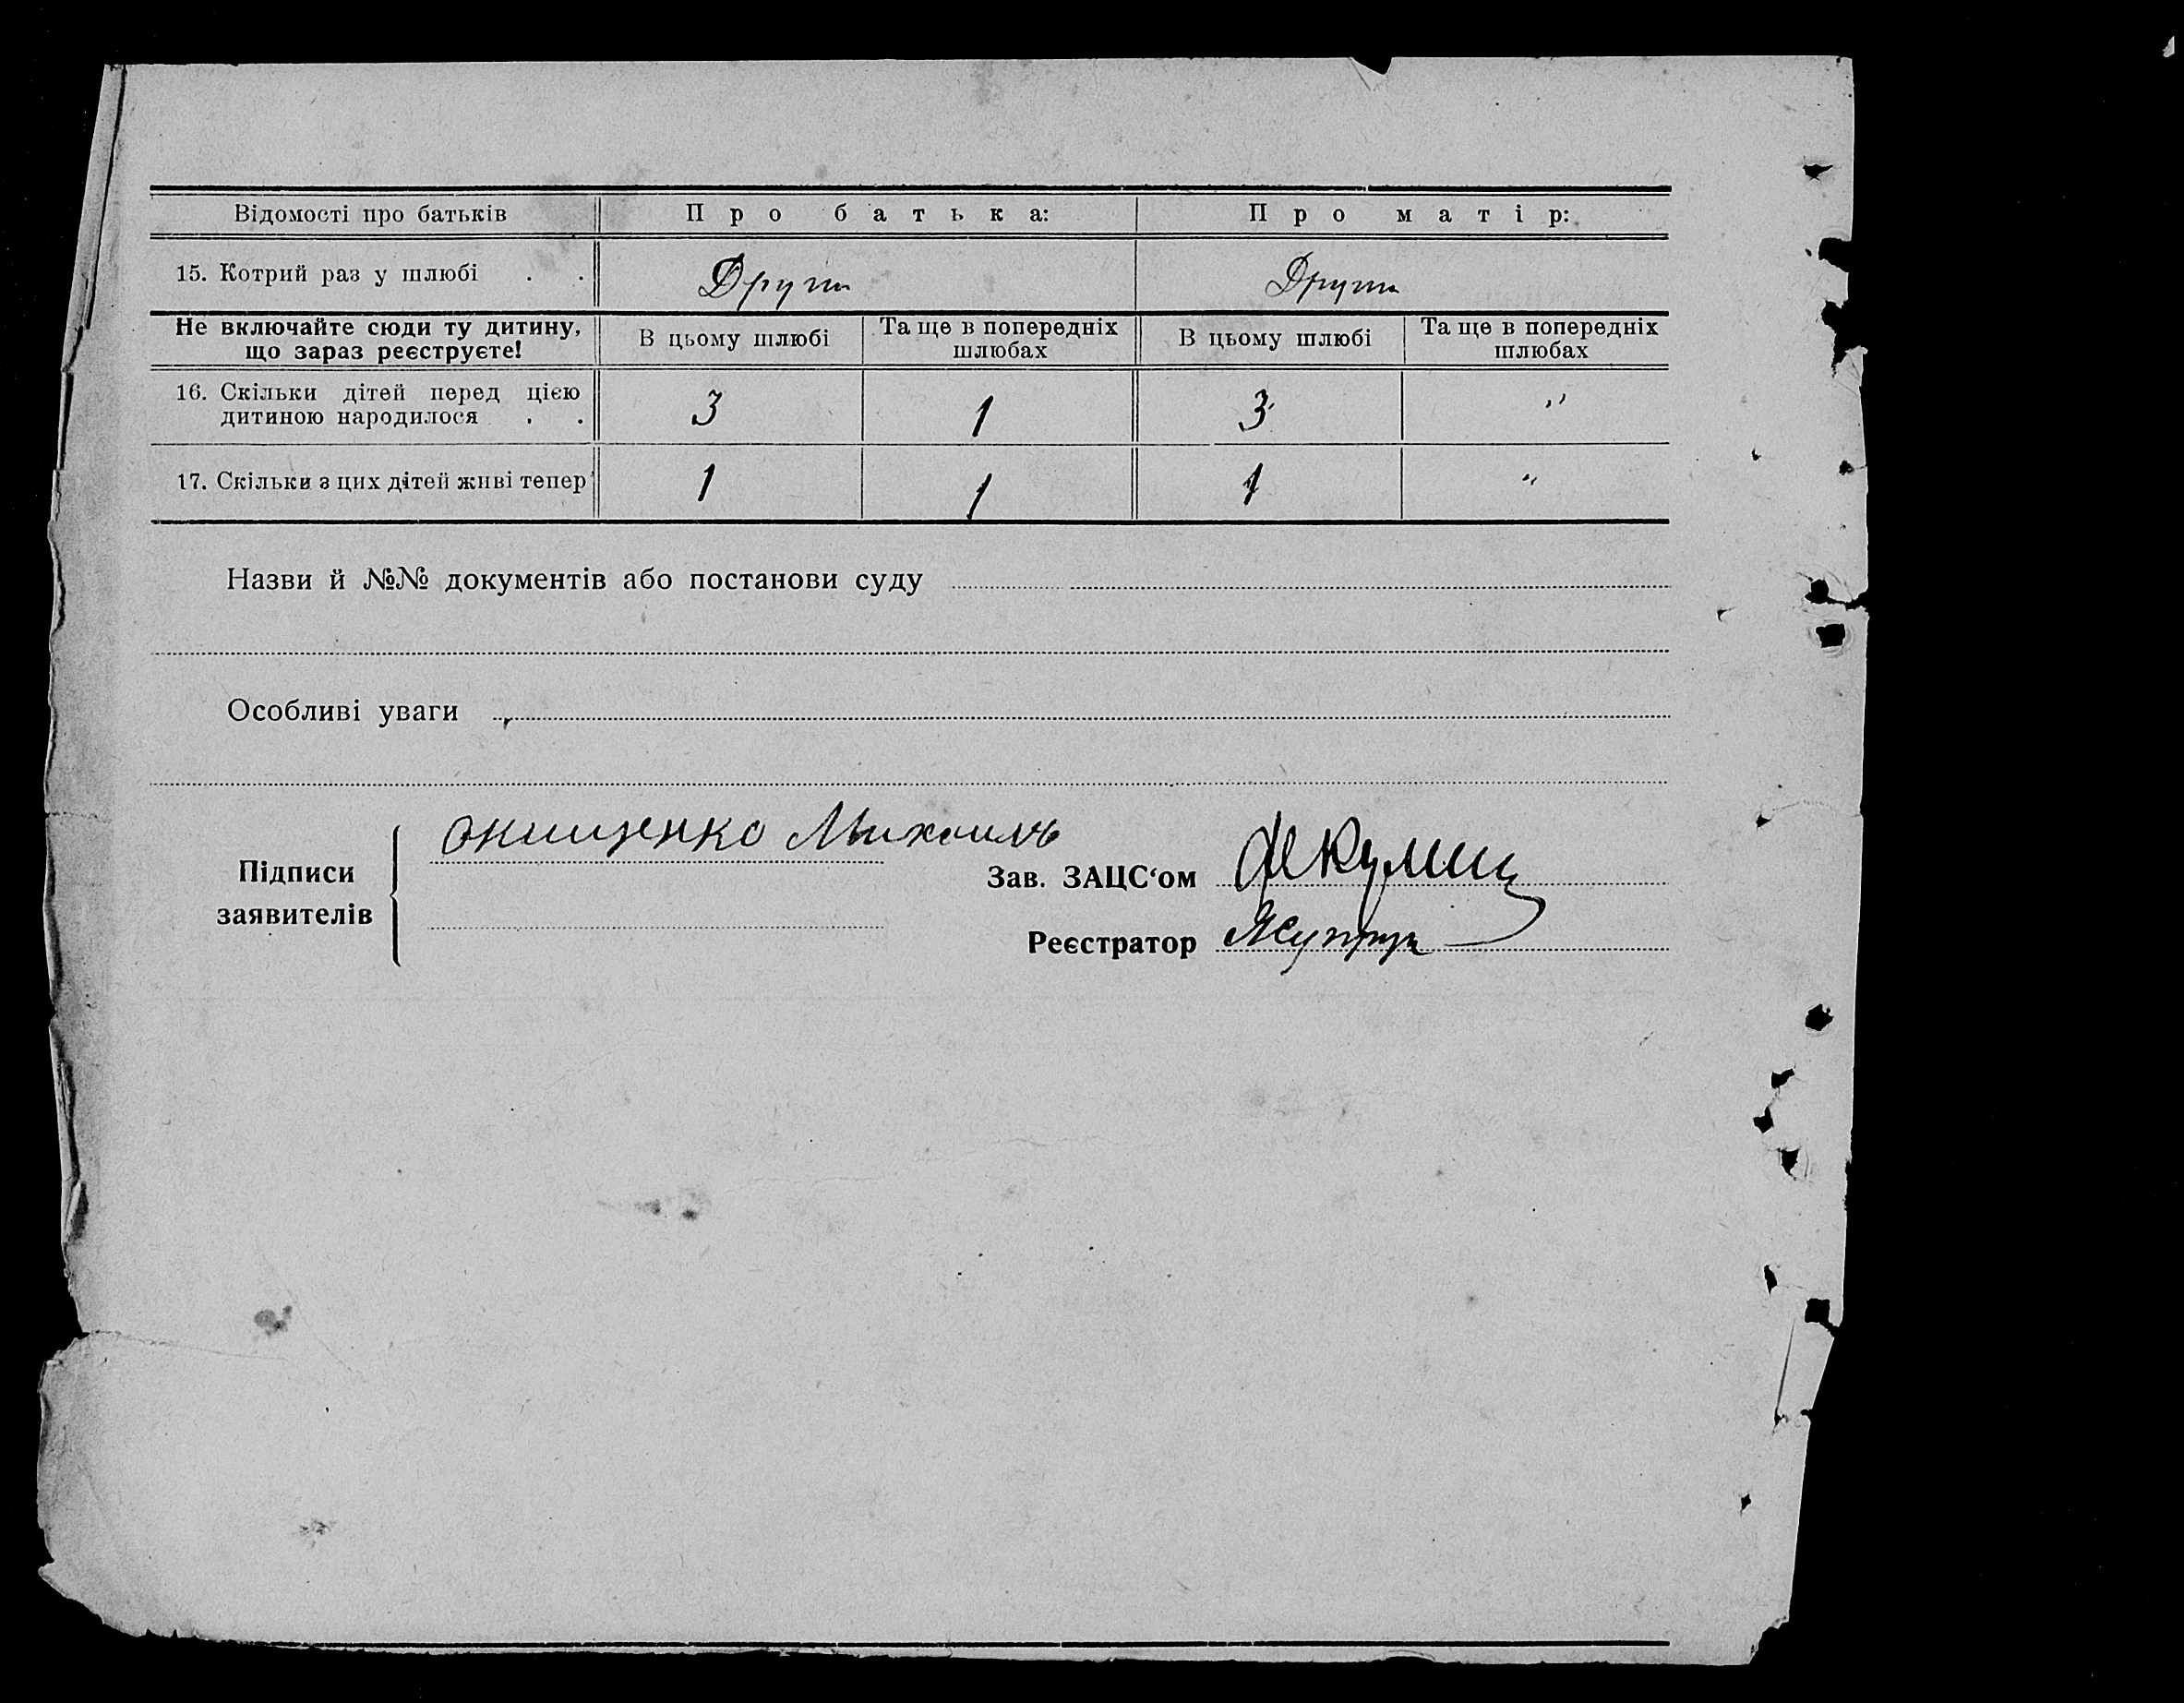 Відомості про батьків Про батька: Про матір:
15. Котрий раз у шлюбі . . Други Други
Не включайте сюди ту дитину, що зараз реєструєте! В цьому шлюбі Та ще в попередніх шлюбах В цьому шлюбі Та ще в попередніх шлюбах
16. Скільки дітей перед цією
дитиною народилося . . 3 1 3 "
17. Скільки з цих дітей живі тепер 1 1 1 "
Назви й №№ документів або постанови суду
Особливі уваги
Підписи заявителів
Онищенко Михаилъ
Зав. ЗАЦС‘ом
Реєстратор